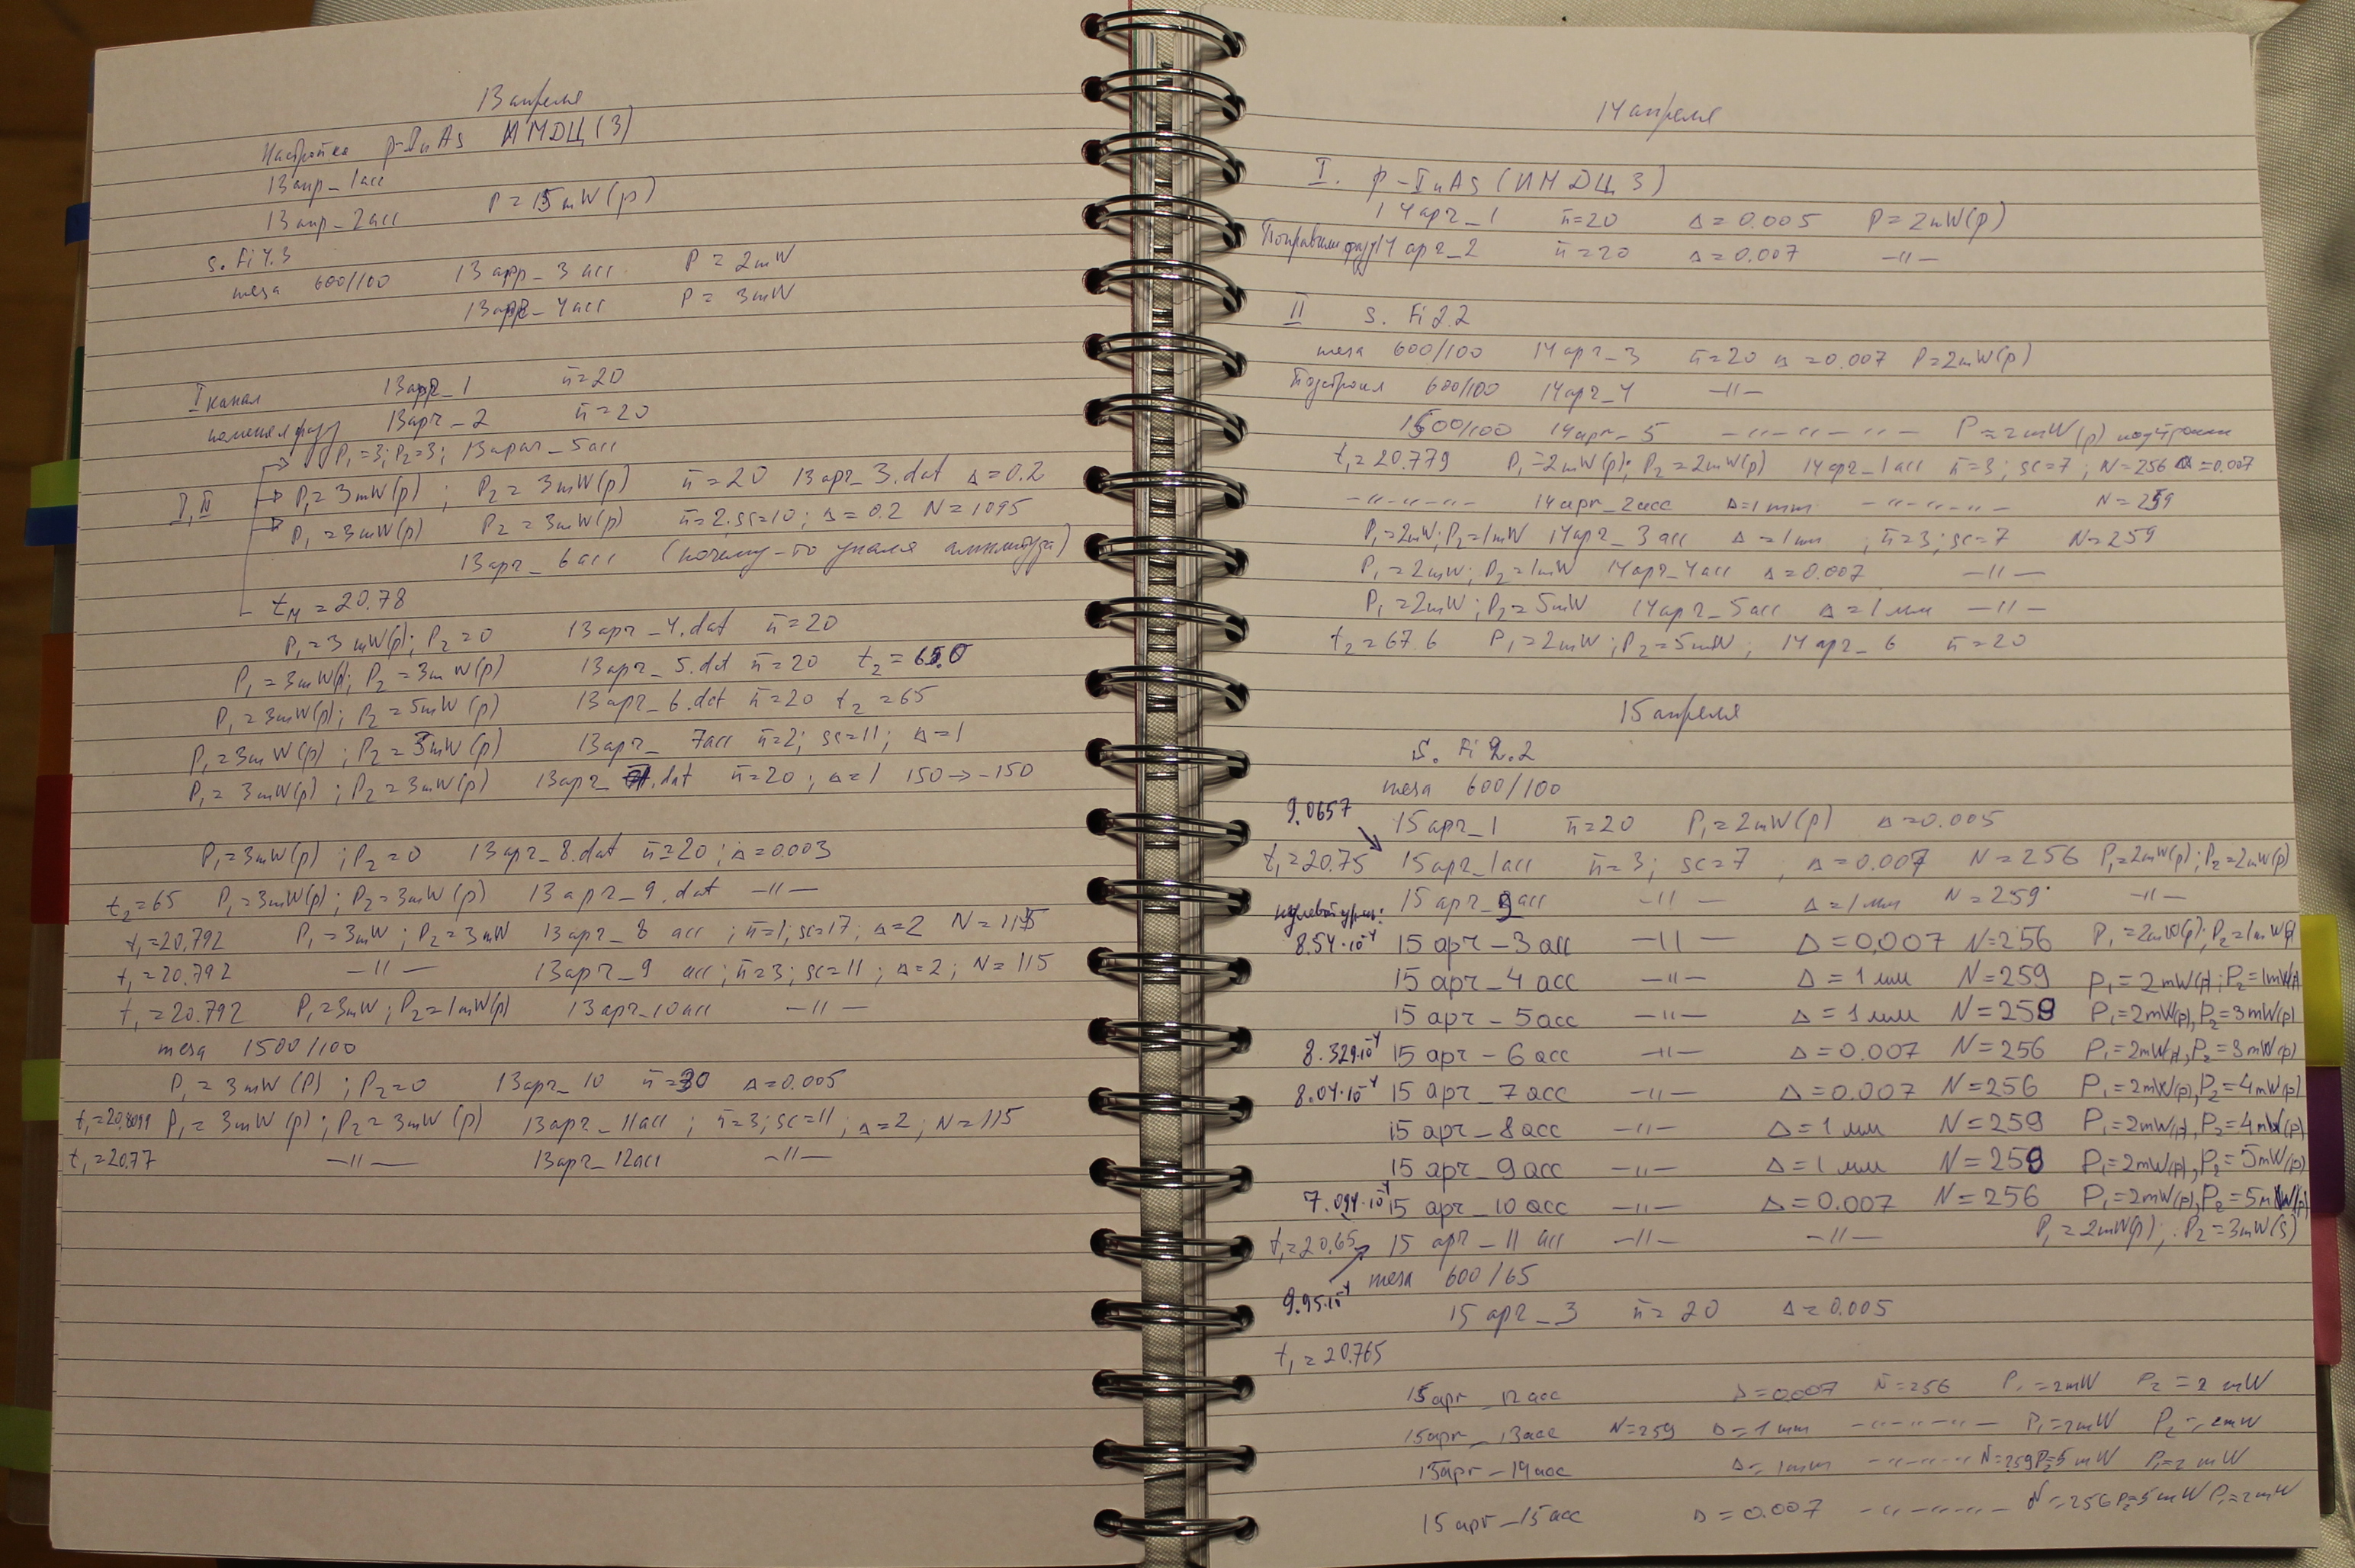 13 апреля
Настройка p-InAs ИМДЦ (3)
13апр_1acc
13апр_2acc P = 15mW(p)
s. Fi 4.3
mesa 600/100 13apr_3 acc P = 2mW
13apr_4acc P = 3mW
I канал 13apr_1 n̄=20
поменял фазу 13apr_2 n̄=20
P₁=3; P₂=3; 13apr_5acc
I, II P₁=3mW(p) ; P₂ = 3mW(p) n̄=20 13apr_3.dat Δ=0.2
P₁=3mW(p) P₂=3mW(p) n̄=2; sc=10; Δ=0.2 N=1095
13apr_6acc (почему-то упала амплитуда)
t_M = 20.78
P₁=3mW(p); P₂=0 13apr_4.dat n̄=20
P₁=3mW(p); P₂=3mW(p) 13apr_5.dat n̄=20 t₂=65.0
P₁=3mW(p); P₂=5mW(p) 13apr_6.dat n̄=20 t₂=65
P₁=3mW(p) ; P₂=3mW(p) 13apr_7acc n̄=2; sc=11; Δ=1
P₁=3mW(p) ; P₂=3mW(p) 13apr_7.dat n̄=20 ; Δ=1 150→-150
P₁=3mW(p) ; P₂=0 13apr_8.dat n̄=20 ; Δ=0.003
t₂=65 P₁=3mW(p); P₂=3mW(p) 13apr_9.dat -11-
t₁=20,792 P₁=3mW ; P₂=3mW 13apr_8 acc ; n̄=1; sc=17; Δ=2 N=115
t₁=20.792 -11- 13apr_9 acc; n̄=3; sc=11 ; Δ=2; N=115
t₁=20.792 P₁=3mW; P₂=1mW(p) 13apr_10acc -11-
mesa 1500/100
P₁=3mW(P) ; P₂=0 13apr_10 n̄=30 Δ=0.005
t₁=20,8099 P₁=3mW(p); P₂=3mW(p) 13apr_11acc ; n̄=3; sc=11; Δ=2; N=115
t₁=20.77 -11- 13apr_12acc -11-
14 апреля
I. p-InAs (ИМДЦ 3)
14apr_1 n̄=20 Δ=0.005 P=2mW(p)
Поправили фазу 14apr_2 n̄=20 Δ=0.007 -11-
II s. Fi 2.2
mesa 600/100 14apr_3 n̄=20 Δ=0.007 P=2mW(p)
Подстроил 600/100 14apr_4 -11-
1500/100 14apr_5 -"-"-"- P=2mW(p) подстроили
t₁=20.779 P₁=2mW(p); P₂=2mW(p) 14apr_1acc n̄=3; sc=7 ; N=256 Δ=0.007
-"-"-"- 14apr_2acc Δ=1mm -"-"-"- N=259
P₁=2mW; P₂=1mW 14apr_3acc Δ=1mm ; n̄=3; sc=7 N=259
P₁=2mW; P₂=1mW 14apr_4acc Δ=0.007 -11-
P₁=2mW; P₂=5mW 14apr_5acc Δ=1мм -11-
t₂=67.6 P₁=2mW; P₂=5mW; 14apr_6 n̄=20
15 апреля
s. Fi 2.2
mesa 600/100
9.0657 15apr_1 n̄=20 P₁=2mW(p) Δ=0.005
t₁=20.75 15apr_1acc n̄=3; sc=7 , Δ=0.007 N=256 P₁=2mW(p); P₂=2mW(p)
15 apr_2acc -11- Δ=1мм N=259 -11-
8.54·10⁻⁴ 15 apr_3 acc -11- Δ=0,007 N=256 P₁=2mW(p); P₂=1mW(p)
15 apr_4 acc -11- Δ=1 мм N=259 P₁=2mW(p); P₂=1mW(p)
15 apr_5acc -11- Δ=1мм N=259 P₁=2mW(p), P₂=3mW(p)
8.329·10⁻⁴ 15 apr_6 acc -11- Δ=0.007 N=256 P₁=2mW(p), P₂=3mW(p)
8.04·10⁻⁴ 15 apr_7 acc -11- Δ=0.007 N=256 P₁=2mW(p), P₂=4mW(p)
15 apr_8acc -11- Δ=1 мм N=259 P₁=2mW(p), P₂=4mW(p)
15 apr_9 acc -11- Δ=1 мм N=259 P₁=2mW(p), P₂=5mW(p)
7.094·10⁻⁴ 15 apr_10 acc -11- Δ=0.007 N=256 P₁=2mW(p), P₂=5mW(p)
t₁=20.65 15 apr_11 acc -11- -11- P₁=2mW(p); P₂=3mW(s)
mesa 600/65
9.95·10⁻⁴ 15 apr_3 n̄=20 Δ=0.005
t₁=20.765
15apr_12acc Δ=0.007 N=256 P₁=2mW P₂=2mW
15apr_13acc N=259 Δ=1mm -"-"-"- P₁=2mW P₂=2mW
15apr_14acc Δ=1mm -"-"-"- N=259 P₂=5mW P₁=2mW
15apr_15acc Δ=0.007 -"-"-"- N=256 P₂=5mW P₁=2mW